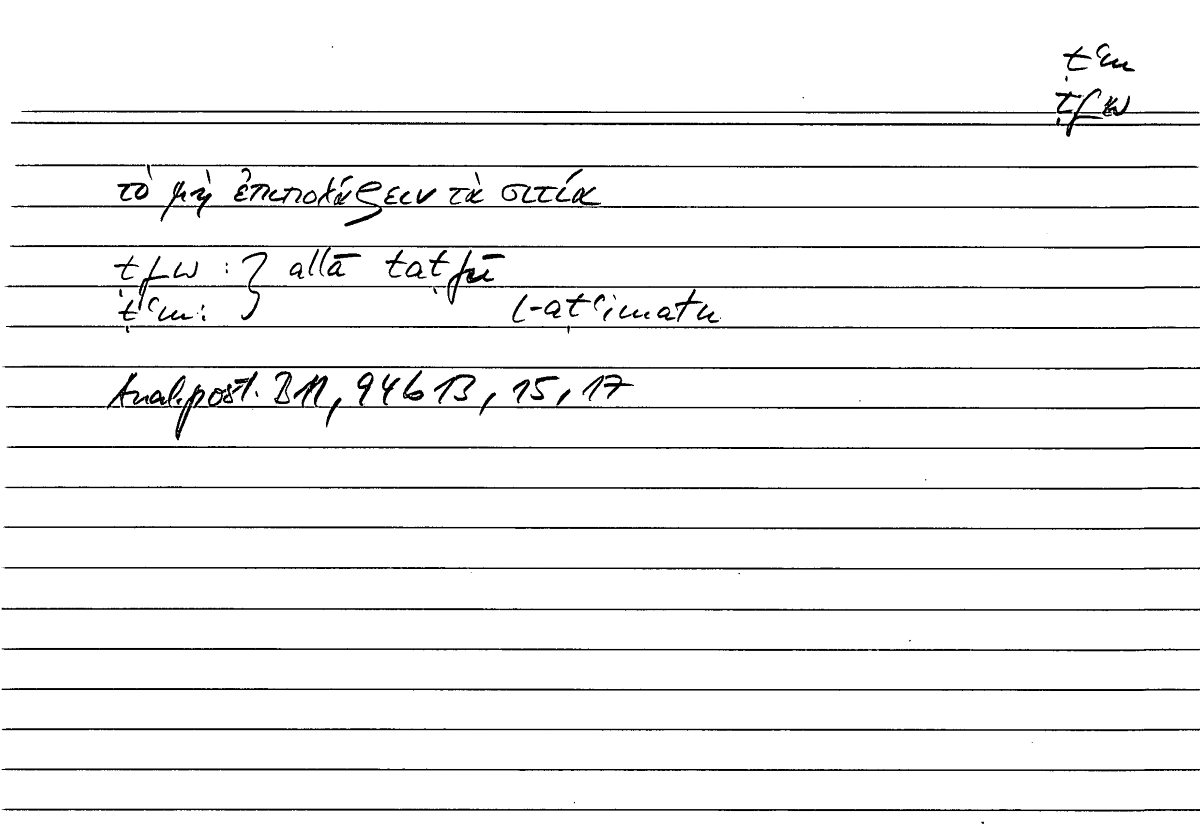 ṭʿm
ṭfw
τὸ μὴ ἐπιπολάζειν τὰ σιτία
ṭfw : } allā taṭfū
ṭʿm : l-aṭʿimatu
Anal. post. B 11, 94b13, 15, 17